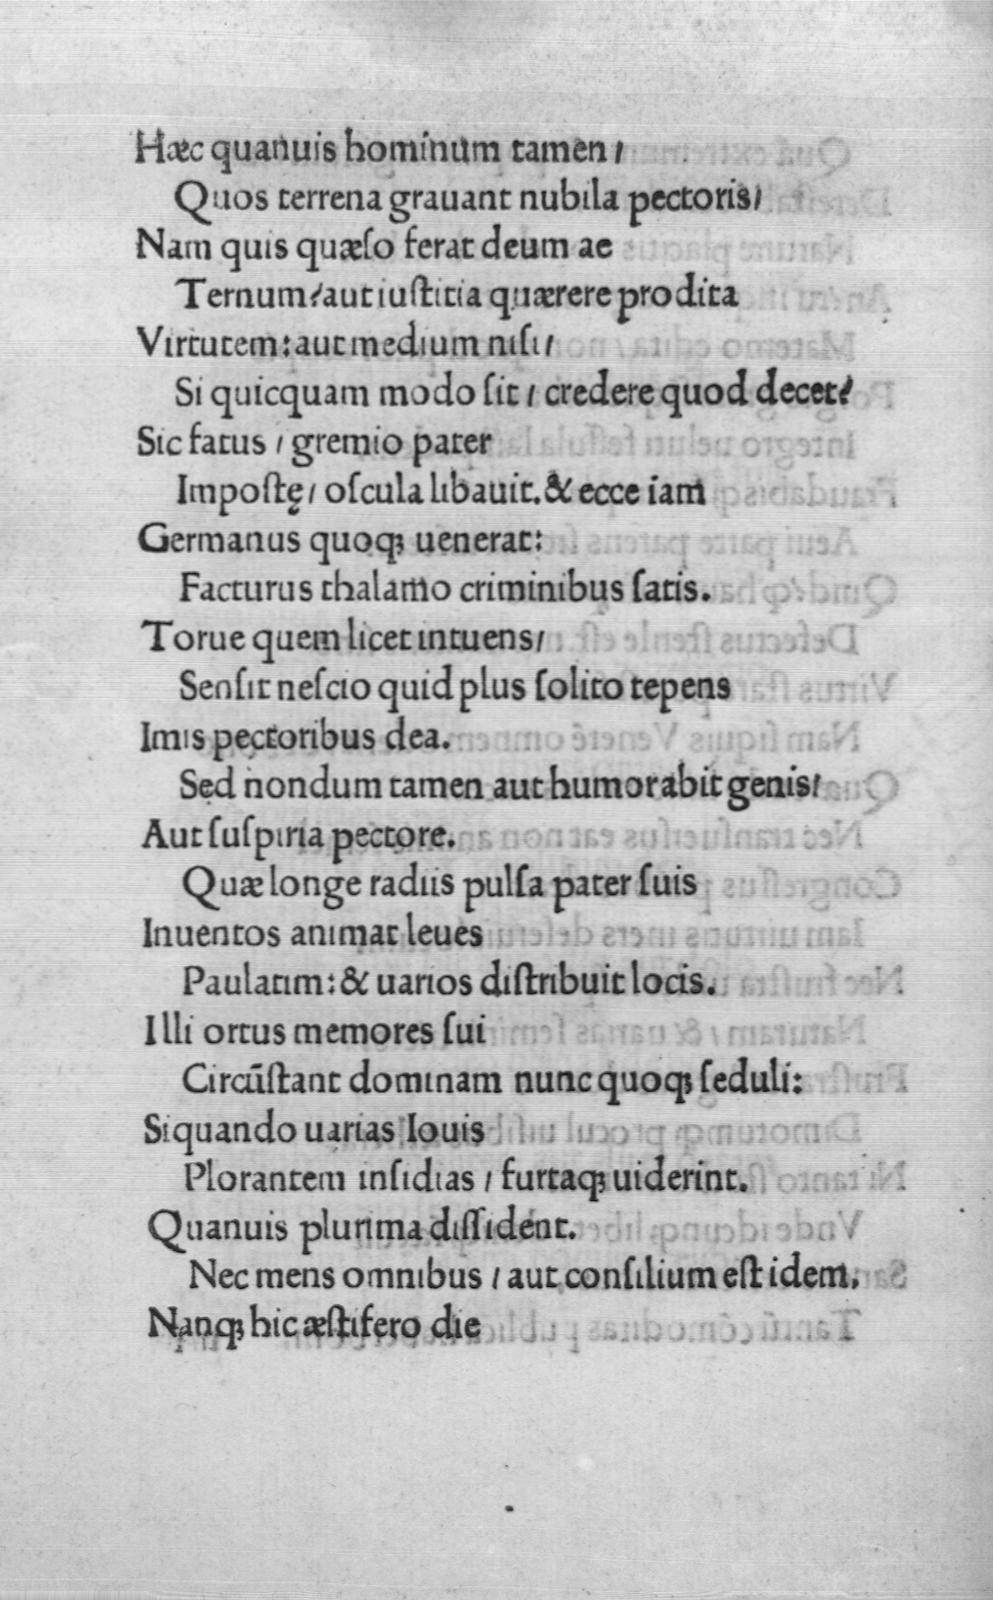 Hæc quanuis hominum tamen/
Quos terrena grauant nubila pectoris/
Nam quis quæſo ferat deum ae
Ternum? aut iuſtitia quærere prodita
Virtutem: aut medium niſi/
Si quicquam modo ſit / credere quod decet?
Sic fatus / gremio pater
Impoſtę / oſcula libauit. & ecce iam
Germanus quoqꝫ uenerat:
Facturus thalamo criminibus ſatis.
Torue quem licet intuens/
Senſit neſcio quid plus ſolito tepens
Imis pectoribus dea.
Sed nondum tamen aut humor abit genis/
Aut ſuſpiria pectore.
Quæ longe radiis pulſa pater ſuis
Inuentos animat leues
Paulatim: & uarios diſtribuit locis.
Illi ortus memores ſui
Circūſtant dominam nunc quoqꝫ ſeduli:
Siquando uarias Iouis
Plorantem inſidias / furtaqꝫ uiderint.
Quanuis plurima diſſident.
Nec mens omnibus / aut conſilium eſt idem.
Nanqꝫ hic æſtifero die